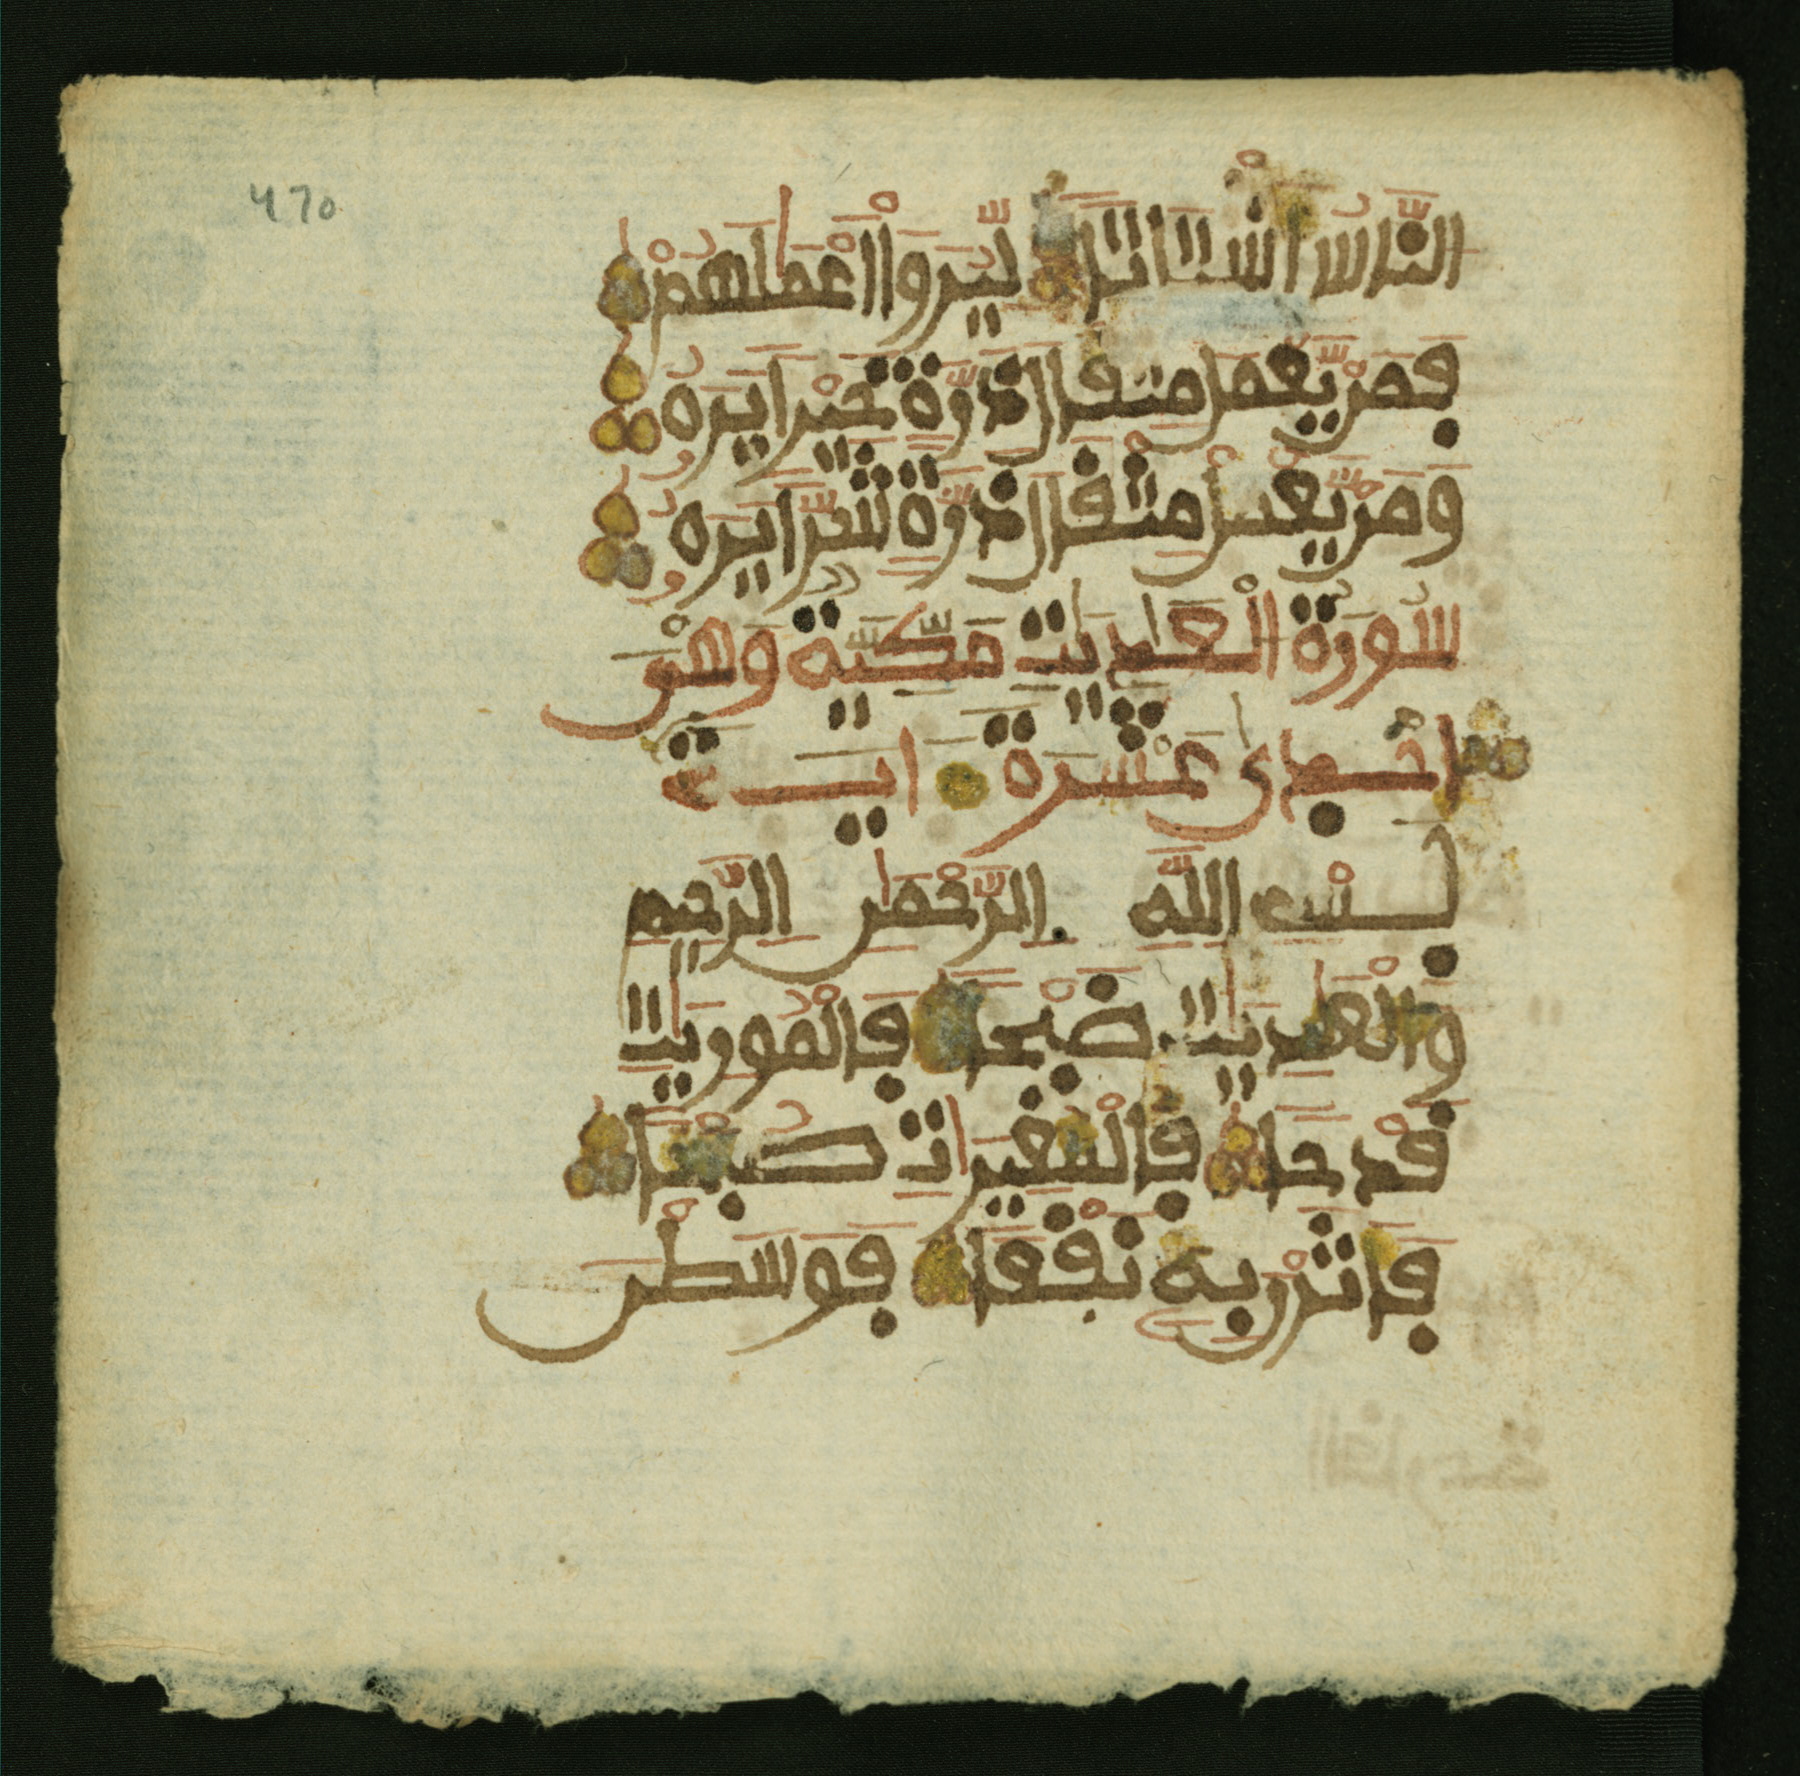 470
النَّاسُ أَشْتَاتًا لِّيُرَوَاْ اَعْمَٰلَهُمْ
فَمَنْ يَّعْمَلْ مِثْقَالَ ذَرَّةٍ خَيْرًا يَرَهُ
وَمَنْ يَّعْمَلْ مِثْقَالَ ذَرَّةٍ شَرًّا يَرَهُ
سُورَةُ الْعَٰدِيَٰتِ مَكِّيَّةٌ وَهْىَ
إِحْدَى عَشْرَةَ ايَةً
بِسْمِ اللَّهِ الرَّحْمَٰنِ الرَّحِيمِ
وَالْعَٰدِيَٰتِ ضَبْحًا فَالْمُورِيَٰتِ
قَدْحًا فَالْمُغِيرَاتِ صُبْحًا
فَأَثَرْنَ بِهِ نَقْعًا فَوَسَطْنَ